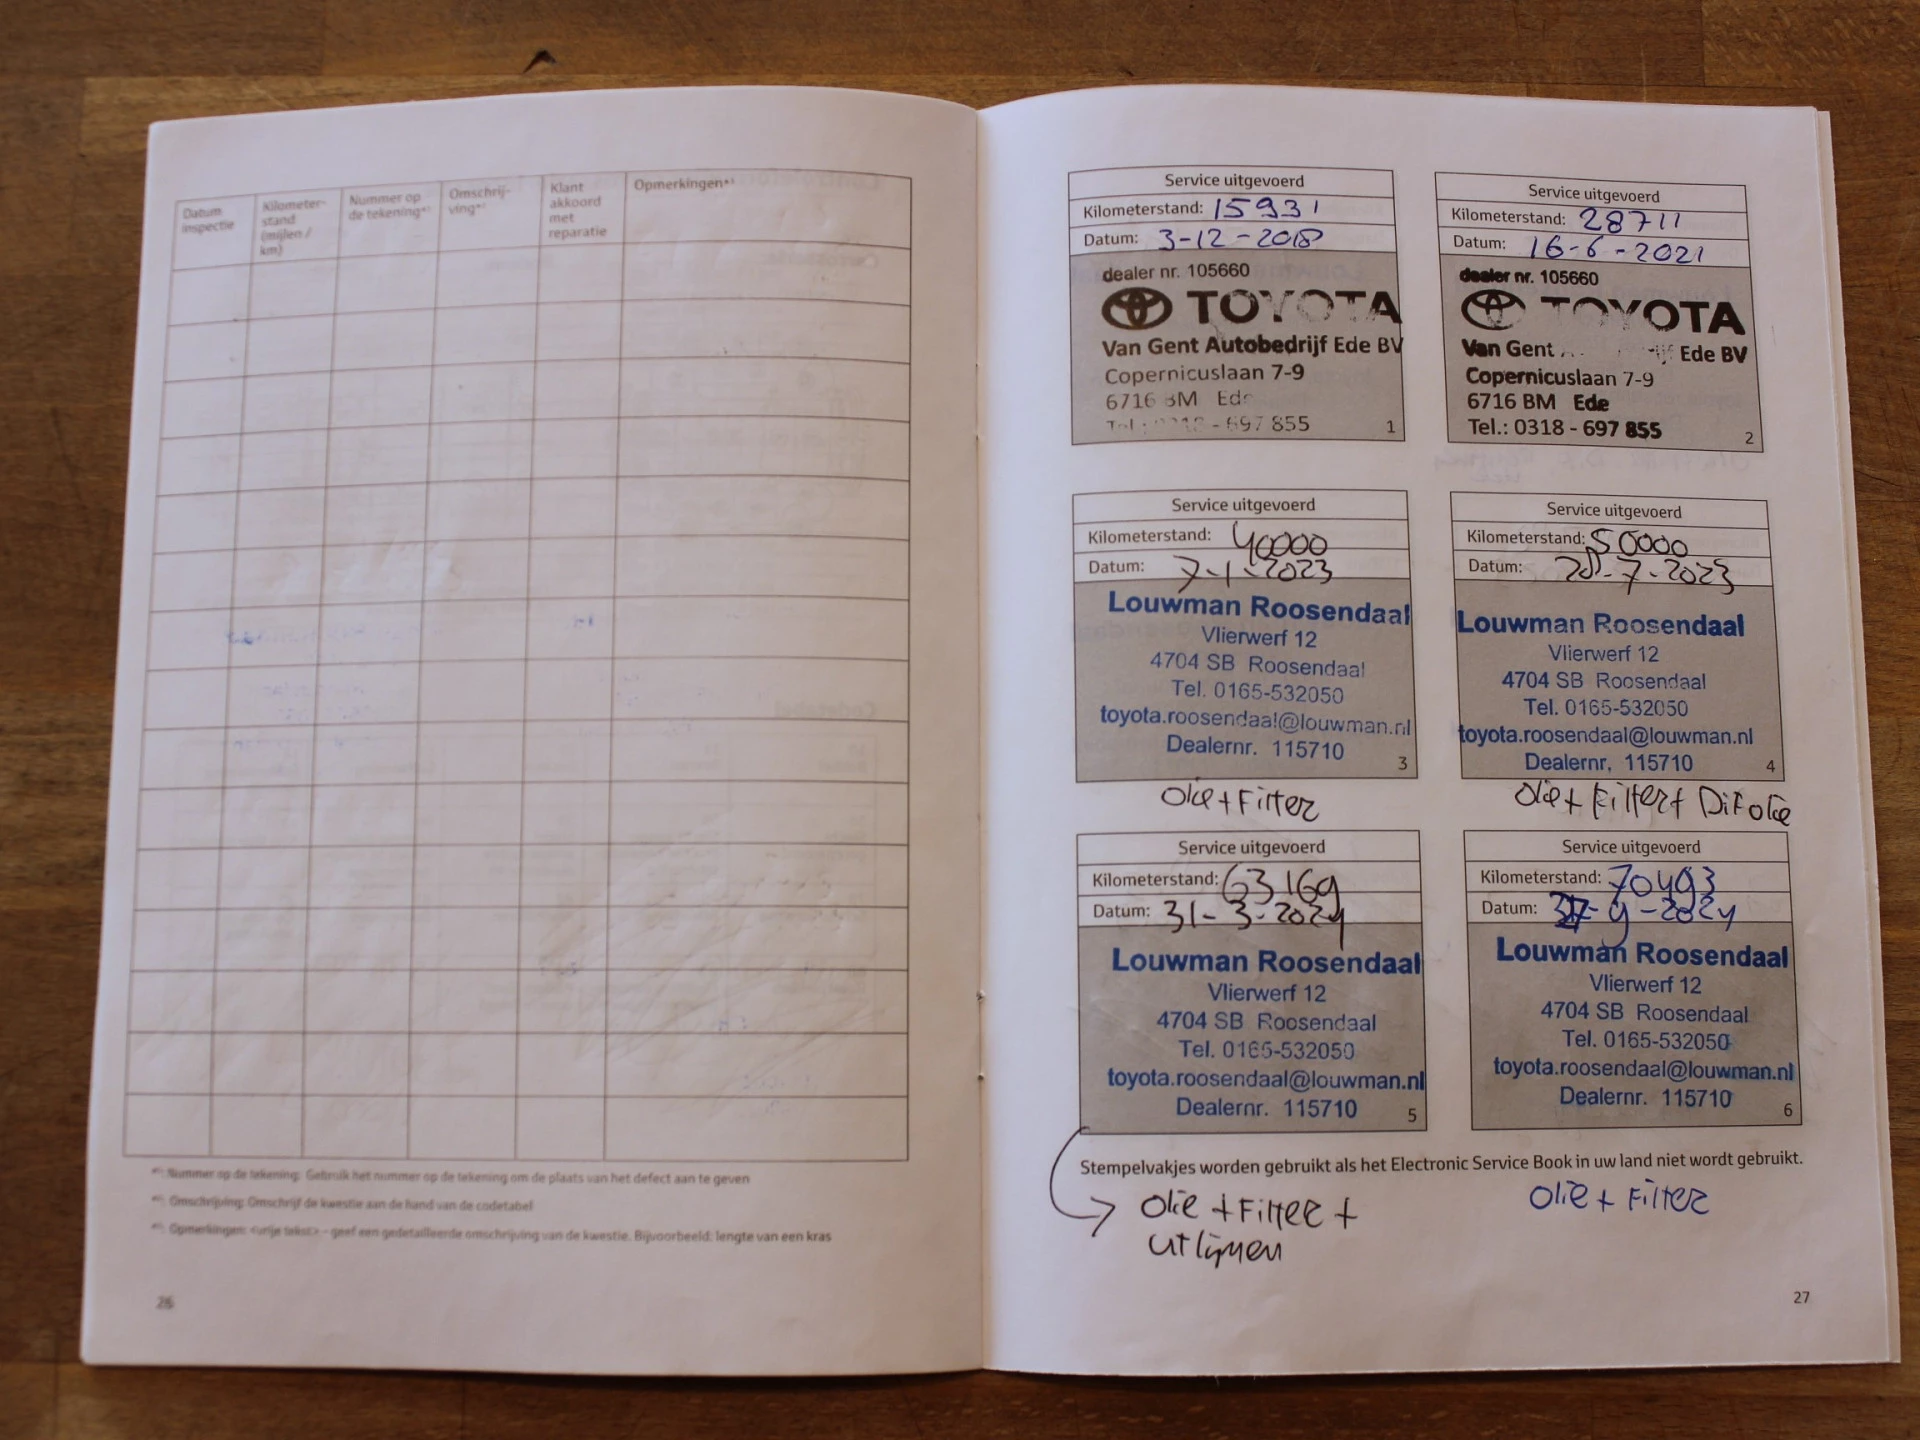 Datum inspectie
Kilometer-stand (mijlen / km)
Nummer op de tekening*¹⁾
Omschrij-ving*²⁾
Klant akkoord met reparatie
Opmerkingen*³⁾
*¹⁾: Nummer op de tekening: Gebruik het nummer op de tekening om de plaats van het defect aan te geven
*²⁾: Omschrijving: Omschrijf de kwestie aan de hand van de codetabel
*³⁾: Opmerkingen: <vrije tekst> – geef een gedetailleerde omschrijving van de kwestie. Bijvoorbeeld: lengte van een kras
26
Service uitgevoerd
Kilometerstand: 15931
Datum: 3-12-2018
dealer nr. 105660
TOYOTA
Van Gent Autobedrijf Ede BV
Copernicuslaan 7-9
6716 BM Ede
- 697 855
1
Service uitgevoerd
Kilometerstand: 28711
Datum: 16-6-2021
dealer nr. 105660
TOYOTA
Van Gent Ede BV
Copernicuslaan 7-9
6716 BM Ede
Tel.: 0318 - 697 855
2
Service uitgevoerd
Kilometerstand: 40000
Datum: 7-1-2023
Louwman Roosendaal
Vlierwerf 12
4704 SB Roosendaal
Tel. 0165-532050
toyota.roosendaal@louwman.nl
Dealernr. 115710
3
Olie + Filter
Service uitgevoerd
Kilometerstand: 50000
Datum: 28-7-2023
Louwman Roosendaal
Vlierwerf 12
4704 SB Roosendaal
Tel. 0165-532050
toyota.roosendaal@louwman.nl
Dealernr. 115710
4
Olie + Filter + Dif olie
Service uitgevoerd
Kilometerstand: 63169
Datum: 31-3-2024
Louwman Roosendaal
Vlierwerf 12
4704 SB Roosendaal
Tel. 0165-532050
toyota.roosendaal@louwman.nl
Dealernr. 115710
5
Service uitgevoerd
Kilometerstand: 70493
Datum: -9-2024
Louwman Roosendaal
Vlierwerf 12
4704 SB Roosendaal
Tel. 0165-532050
toyota.roosendaal@louwman.nl
Dealernr. 115710
6
Stempelvakjes worden gebruikt als het Electronic Service Book in uw land niet wordt gebruikt.
Olie + Filter +
Utlijnen
Olie + Filter
27